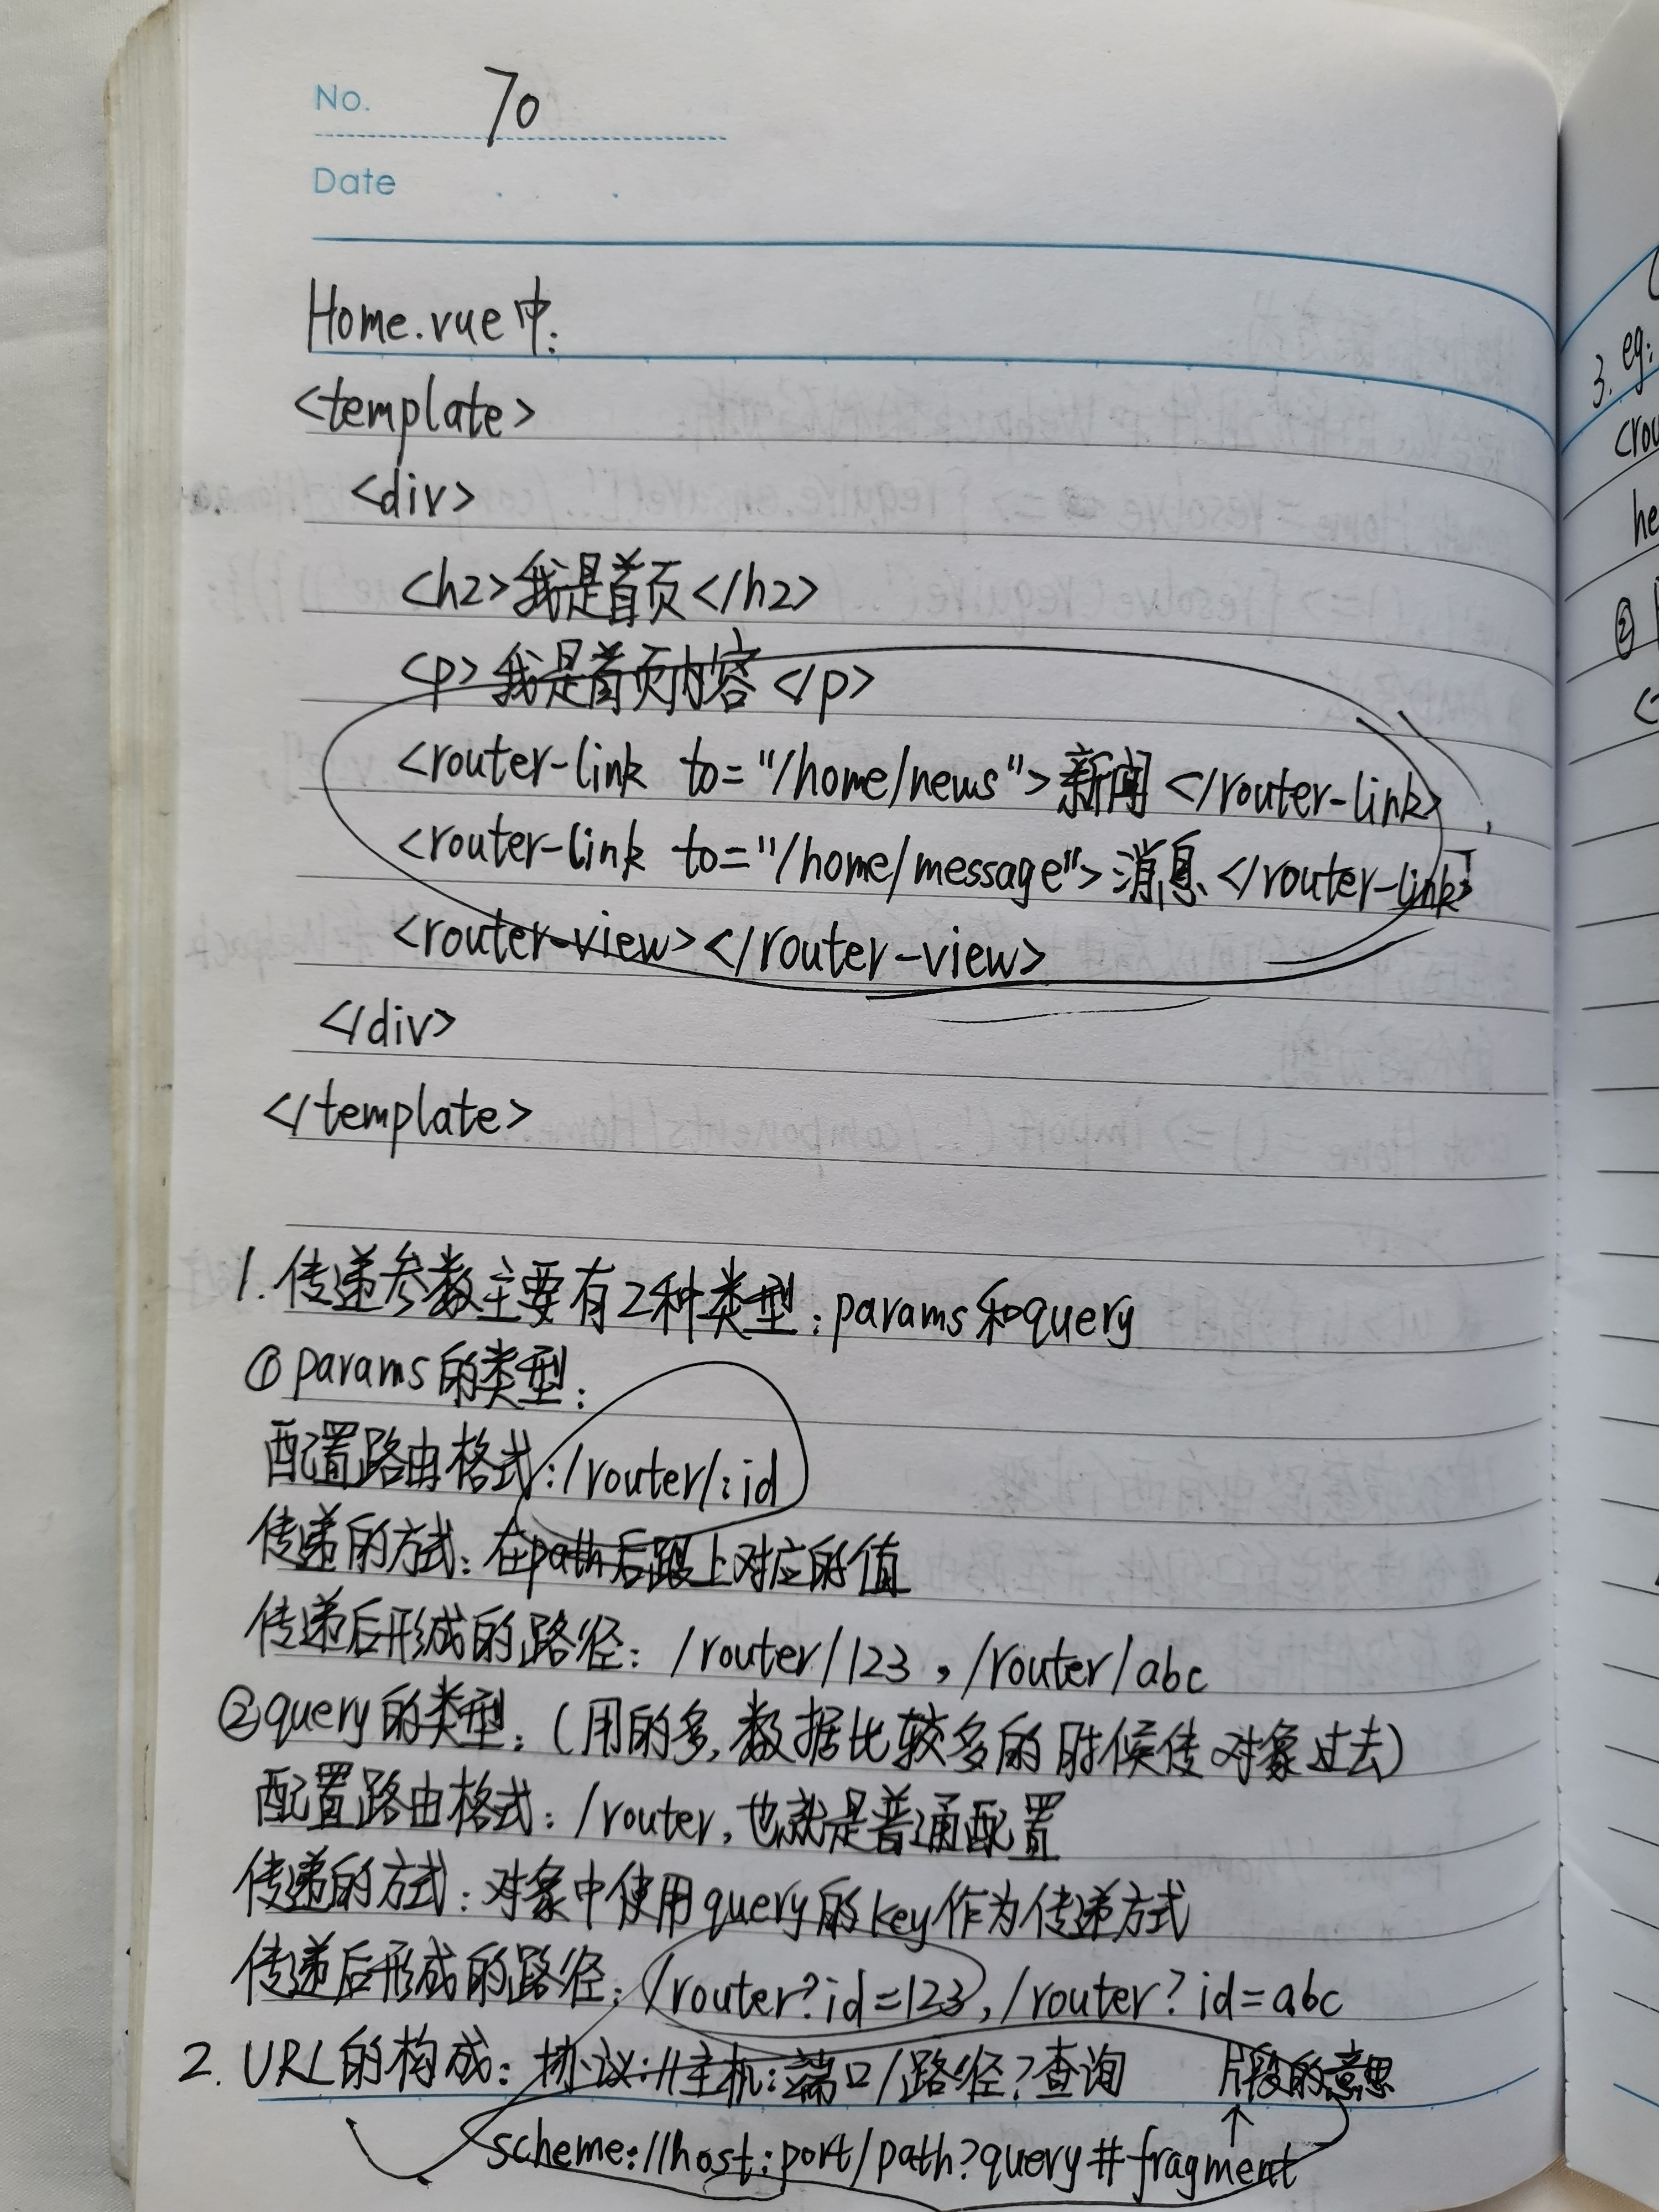 No. 70
Date
Home.vue中:
<template>
<div>
<h2>我是首页</h2>
<p>我是首页内容</p>
<router-link to="/home/news">新闻</router-link>
<router-link to="/home/message">消息</router-link>
<router-view></router-view>
</div>
</template>
1.传递参数主要有2种类型:params和query
①params的类型:
配置路由格式:/router/:id
传递的方式:在path后跟上对应的值
传递后形成的路径:/router/123,/router/abc
②query的类型:(用的多,数据比较多的时候传对象过去)
配置路由格式:/router,也就是普通配置
传递的方式:对象中使用query的key作为传递方式
传递后形成的路径:/router?id=123,/router?id=abc
2.URL的构成:协议://主机:端口/路径?查询 片段的意思
↑
scheme://host:port/path?query#fragment
3. eg:
<rou
he
②
<